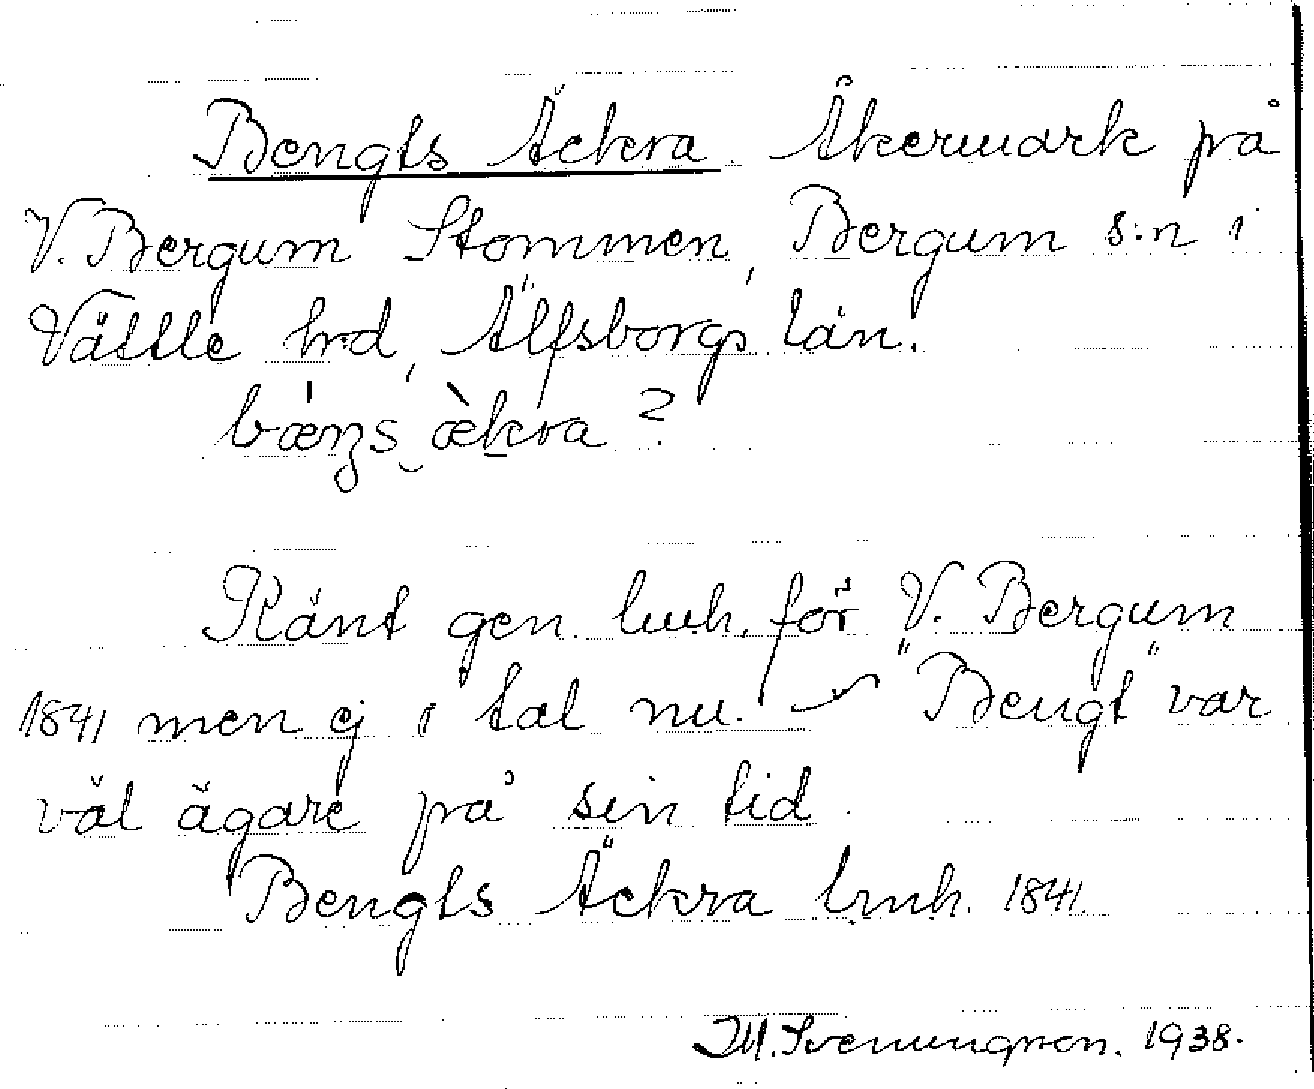 Bengts Äckra. Åkermark på
V. Bergum Stommen, Bergum s:n i
Vättle hrd, Älfsborgs län.
bæŋs æ̀kra ?
Känt gen. lmh. för V. Bergum
1841 men ej i tal nu. "Bengt" var
väl ägare på sin tid.
Bengts Äckra lmh. 1841.
Svenungson. 1938.